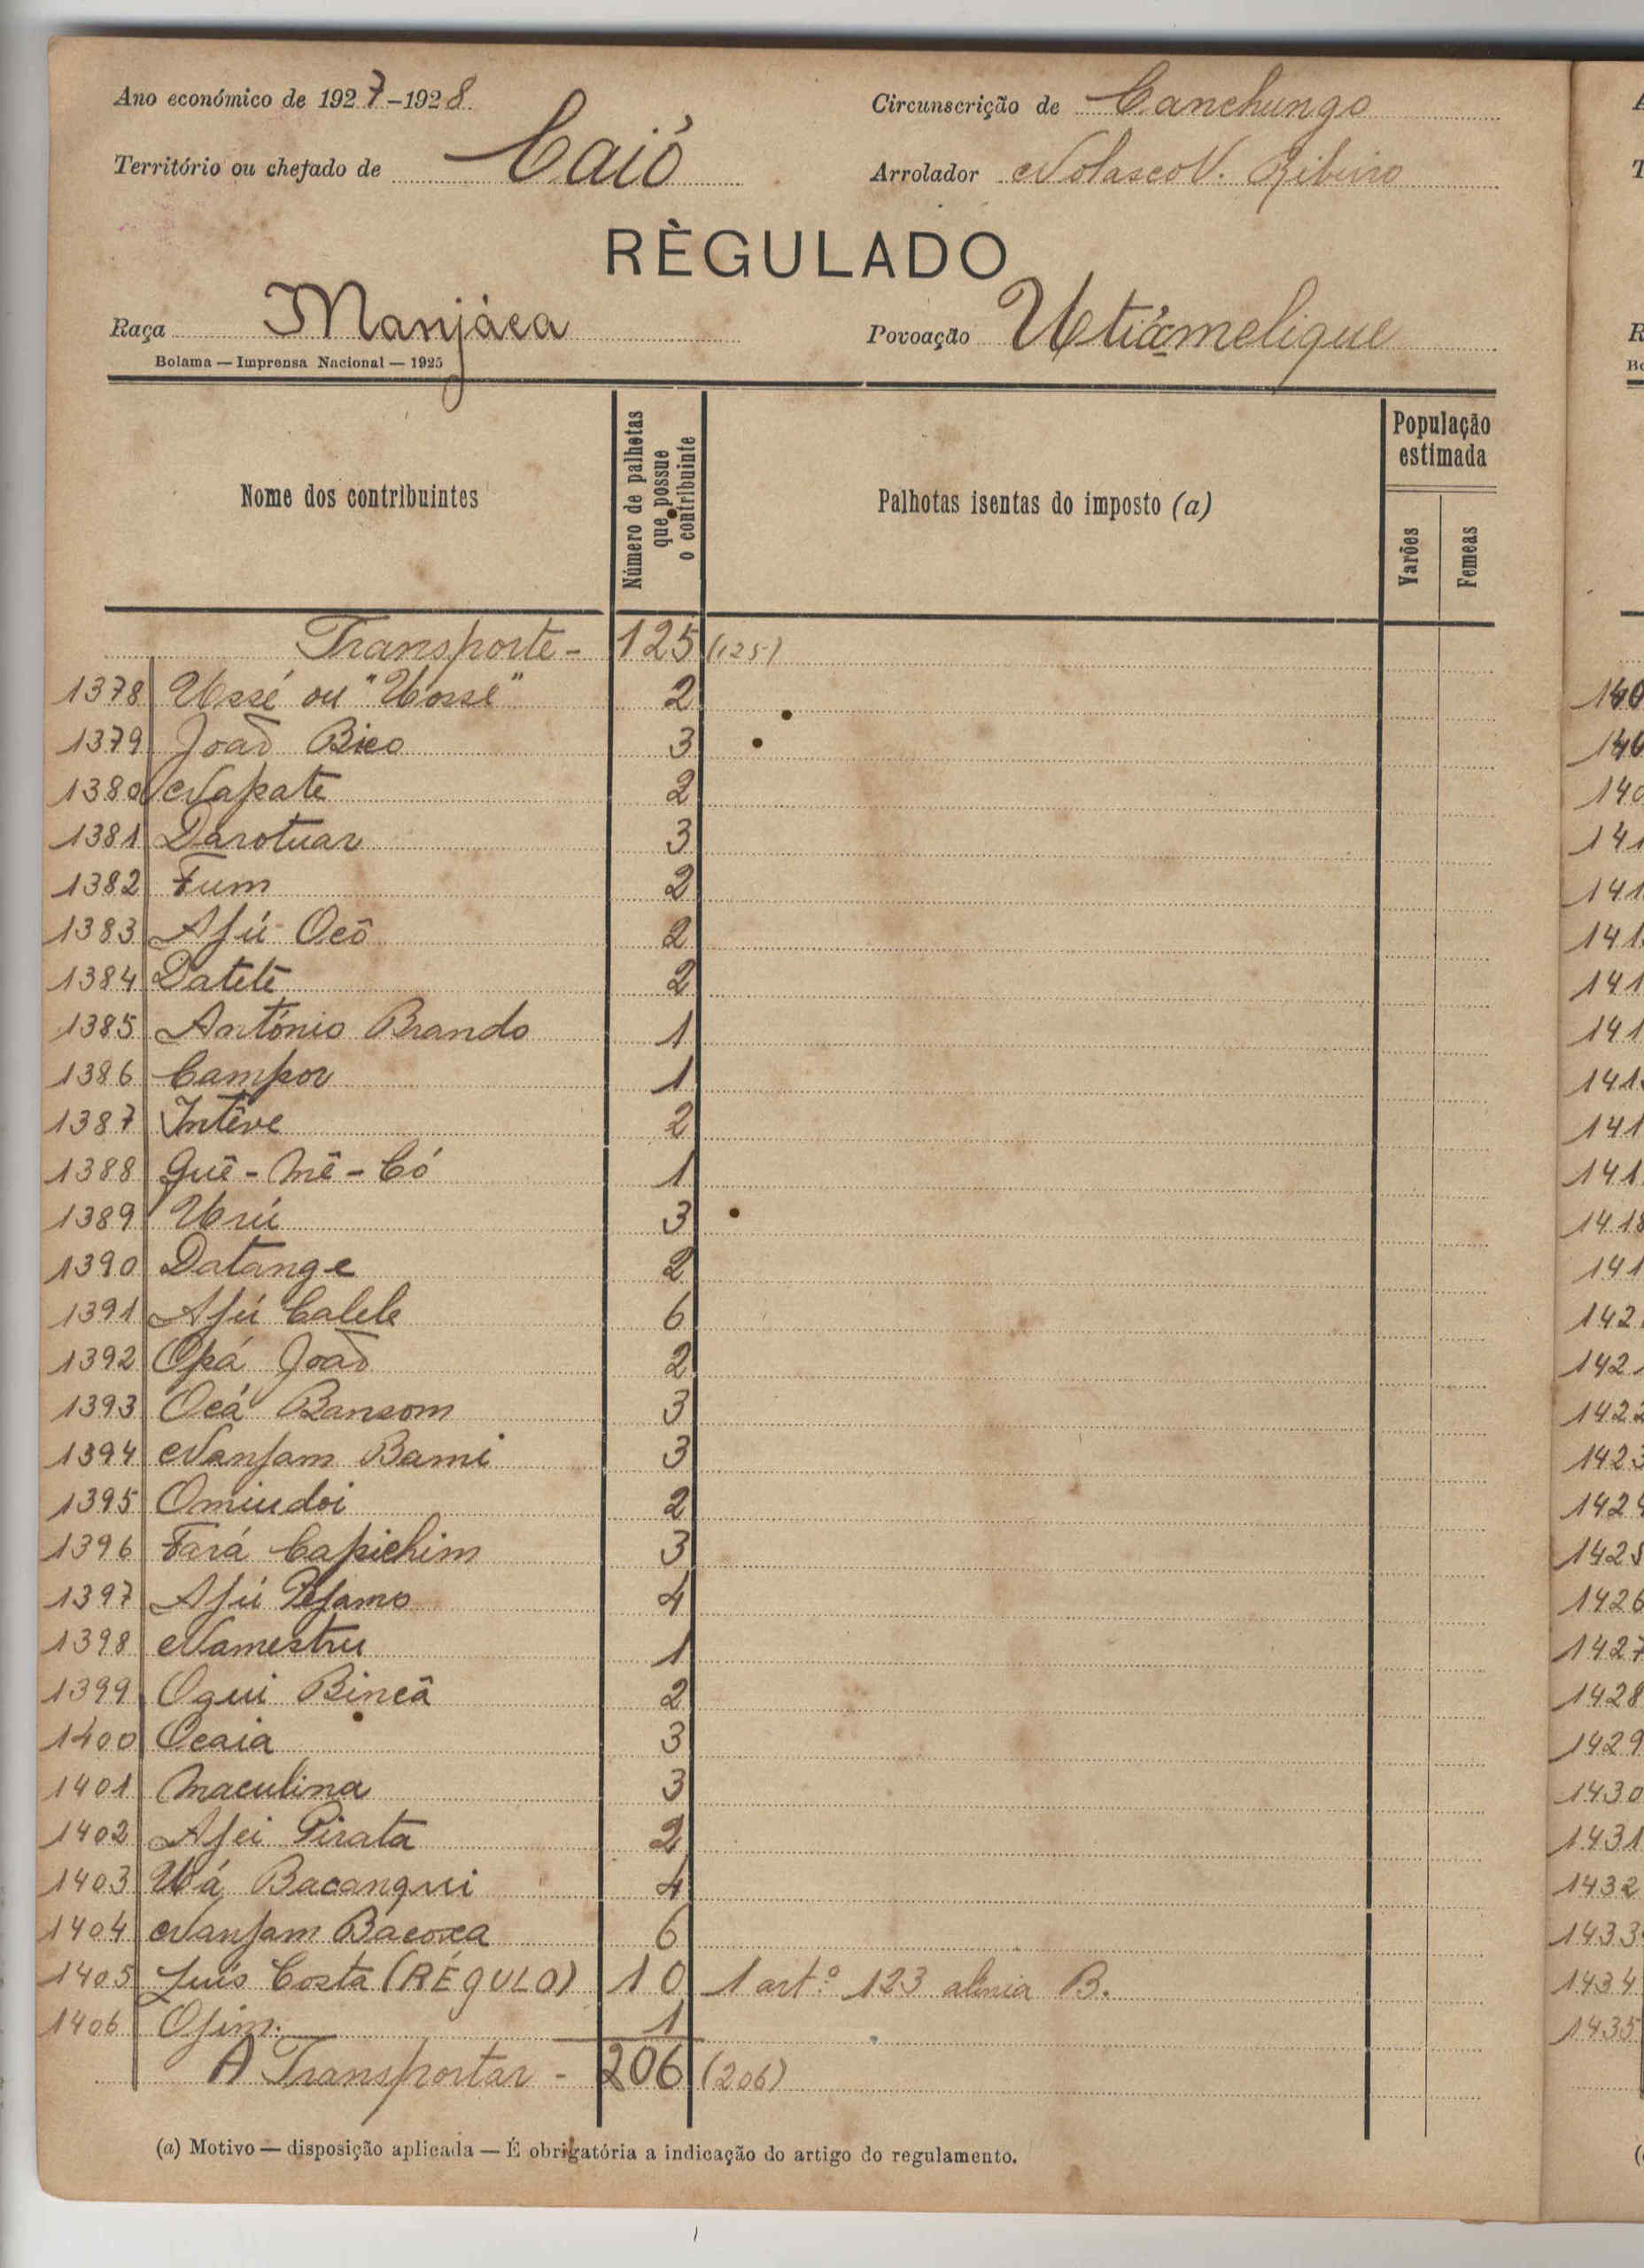 Ano económico de 1927-1928
Circunscrição de Canchungo
Território ou chefado de Caió
Arrolador Nolasco V. Ribeiro
RÈGULADO
Raça Manjáca
Povoação Utiamelique
Bolama — Imprensa Nacional — 1925
Nome dos contribuintes
Número de palhotas que possue o contribuinte
Palhotas isentas do imposto (a)
População estimada
Varões
Femeas
Transporte - 125 (125)
1378 Ussé ou "Uossé" 2
1379 João Bico 3
1380 Napate 2
1381 Darotuar 3
1382 Fum 2
1383 Afú Ocô 2
1384 Datete 2
1385 António Brando 1
1386 Campor 1
1387 Intêve 2
1388 Quê-Mê-Có 1
1389 Urú 3
1390 Datange 2
1391 Afú Calele 6
1392 Opá João 2
1393 Ocá Bansom 3
1394 Nanfam Bami 3
1395 Omiudoi 2
1396 Fará Capichim 3
1397 Afú Pefamo 4
1398 Namestru 1
1399 Oqui Bincâ 2
1400 Ocaia 3
1401 Maculina 3
1402 Afei Pirata 2
1403 Uá Bacanqui 4
1404 Nanfam Bacoxa 6
1405 Luís Costa (RÉGULO) 10 1 artº 123 alinia B.
1406 Ofim. 1
A Transportar - 206 (206)
(a) Motivo — disposição aplicada — É obrigatória a indicação do artigo do regulamento.